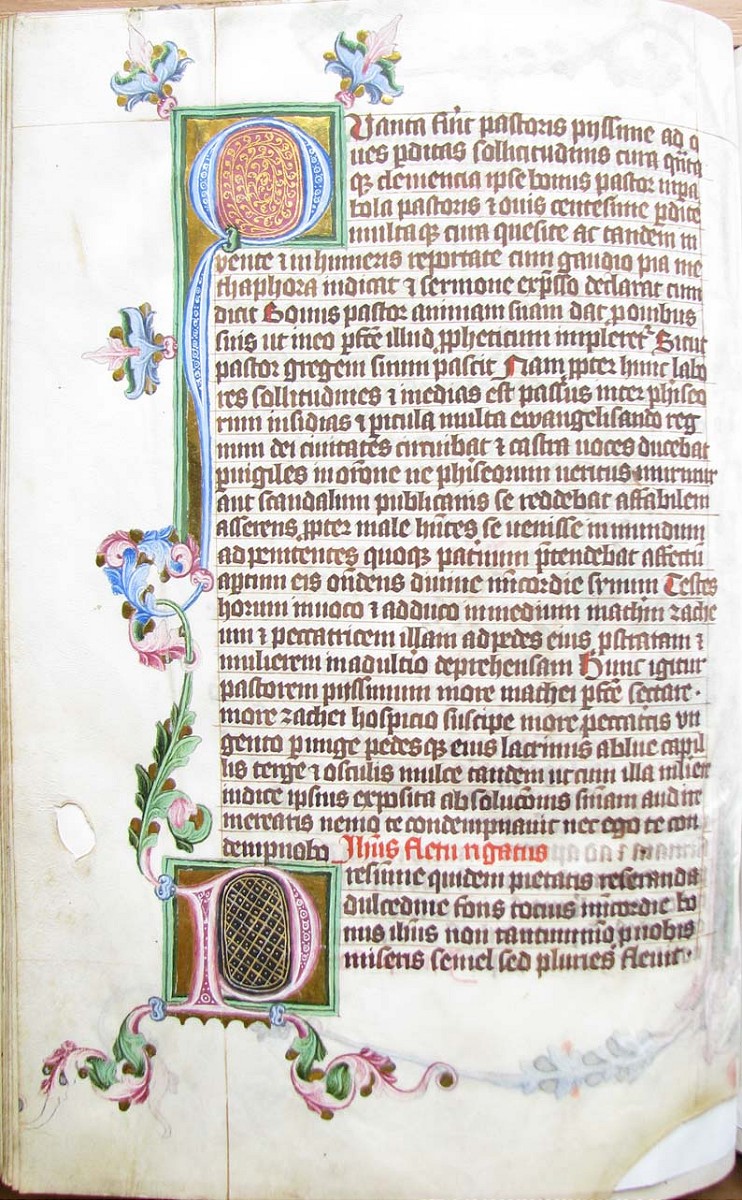 Quanta fuit pastoris pijssime ad q
ues pditas sollicitudinis cura qnta
qz clemencia ipse bonus pastor in pa
bola pastoris ⁊ ouis centesime pdite
multa qz cura quesite ac tandem in
uente ⁊ in humeris reportate cum gaudio pia me
thaphora indicat ⁊ sermone expsso declarat cum
dicit Bonus pastor animam suam dat p ouibus
suis ut in eo pfcte illud ppheticum impleret Sicut
pastor gregem suum pascit Nam ppter hunc labo
res sollitudines ⁊ medias est passus inter phiseo
rum insidias ⁊ picula multa ewangelisando reg
num dei ciuitates circuibat ⁊ castra noces ducebat
puigiles in orone ne phiseorum ueritus murmur
aut scandalum publicanis se reddebat affabilem
asserens ppter male hntes se uenisse in mundum
ad penitentes quoqz patrium ptendebat affectu
aptum eis ondens diuine micordie synum Testes
horum inuoco ⁊ adduco in medium mathm zache
um ⁊ peccatricem illam ad pedes eius pstratam ⁊
mulierem in adultio deprehensam Hunc igitur
pastorem pijssimum more mathei pfcte sectare ·
more zachei hospicio suscipe more peccatricis vn
gento punge pedesqz eius lacrimis ablue capil
lis terge ⁊ osculis mulce tandem ut cum illa mlier
iudice ipsius exposita absolucois sniam audire
merearis nemo te condempnauit nec ego te con
dempnobo Ihus fletu rigatus
Presume quidem pietatis reseranda
dulcedine fons tocius micordie bo
nus ihus non tantummo p nobis
miseris semel sed pluries fleuit ·